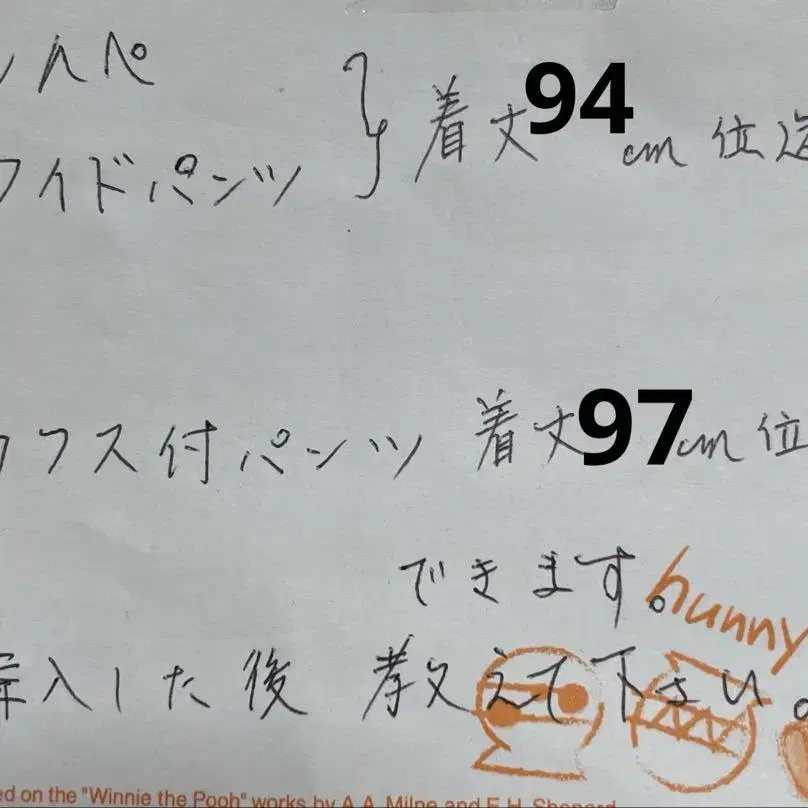 ンペ
ワイドパンツ
着丈94cm位迄
カフス付パンツ 着丈97cm位
できます。
hunny
購入した後 教えて下さい。
ed on the "Winnie the Pooh" works by A.A. Milne and E.H. Shepard